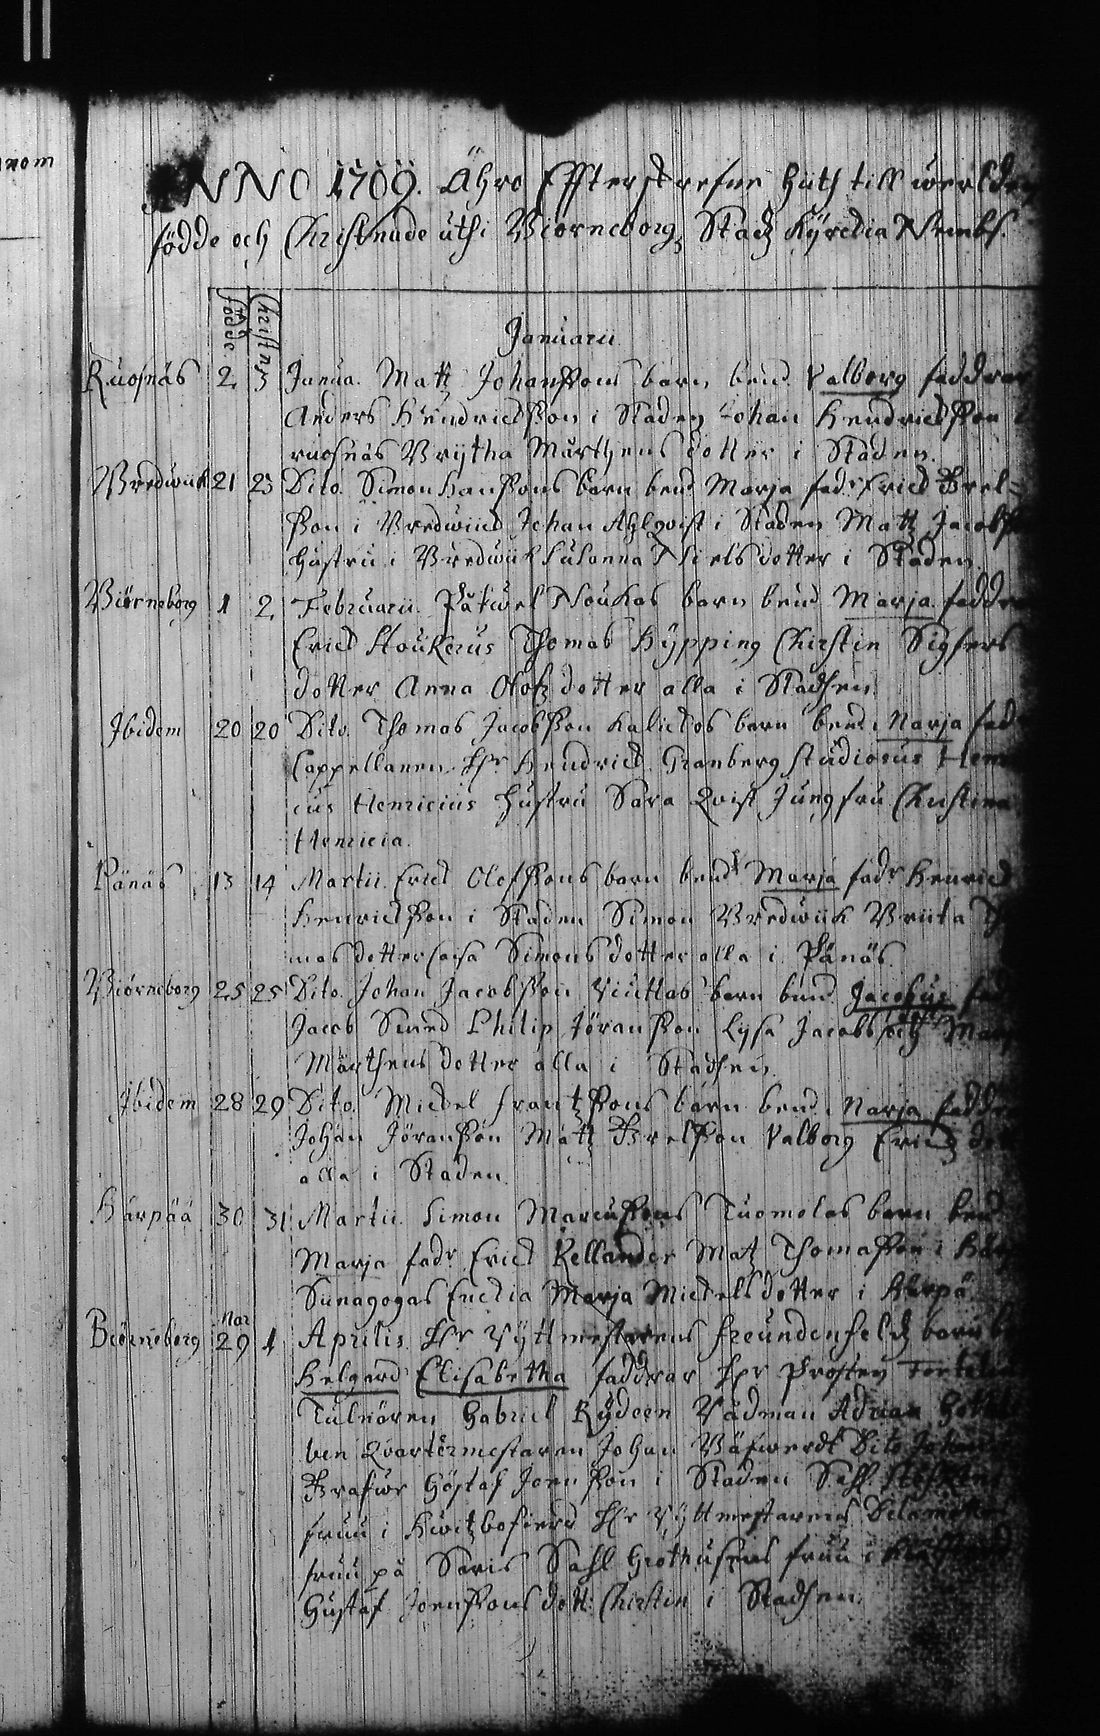 nom
ANNO 1709. Ähro Effterskrefne hiith till werlden
födde och Christnade uthi Biörneborgz Stadz Kyrckia Nembl.
födde Christn
Januarii
Ruosnäs 2 3 Janua. Matz Johanssons barn bend Valborg faddrar
Anders Hendricksson i Staden Johan Hendricksson i
ruosnäs Brijtha Mårthens dotter i Staden.
Vredwiik 21 23 Dito. Simon Hanssons barn bend Marja fadr Erick
sson i Vredwiik Johan Ahlqvist i Staden Matz Jacobss
hustru i Vredwiik Susanna Nielsdotter i Staden
Biörneborg 1 2 Februarii. Påfwel Noukas barn bend Marja faddra
Erick Thomas Hypping Chirstin Sigfers
dotter Anna Olofz dotter alla i Stadhen
Ibidem 20 20 Dito. Thomas Jacobsson Kalickos barn bend Marja fad
Cappellanen Hr Hendrick Granberg studiosus Hen
cus Henricius hustru Sara Qvist Jungfru Christina
Henricia.
Pänäs 13 14 Martii. Erick Olofssons barn bendt Marja fadr Henrick
Henricksson i Staden Simon Vredwiik Briita Th
mas dotter Caisa Simons dotter alla i Pänäs.
Biörneborg 25 25 Dito. Johan Jacobsson barn bend Jacobus fad
Jacob Philip Jöransson Lysa Jacobs dott Marg
Mårthens dotter alla i Stadhen.
Ibidem 28 29 Dito. Mickel Frantzssons barn bend Marja faddra
Johan Jöransson Matz Valborg Erickz dot
alla i Staden.
Härpää 30 31 Martii. Simon Marcussons Tuomolas barn bend
Marja fadr Erick Kellander Matz Thomasson i
Sunagogas Enckia Marja Mickelsdotter i Härpä
Mar
Biörneborg 29 1 Aprilis. Hr Ryttmestarens Freundenfeldz barn be
Helgerd Elisabetha faddrar Hr Prosten
Tulnären Gabriel Rydeen Rådman Adrian
ben Qvartermestaren Johan Dito Johan
Göstaf Joensson i Staden Sahl.
fruu i Hr Ryttmestarens
fruu på Saris Sahl Grothusens fruu i
Gustaf Joenssons dott: Chirstin i Stadhen.